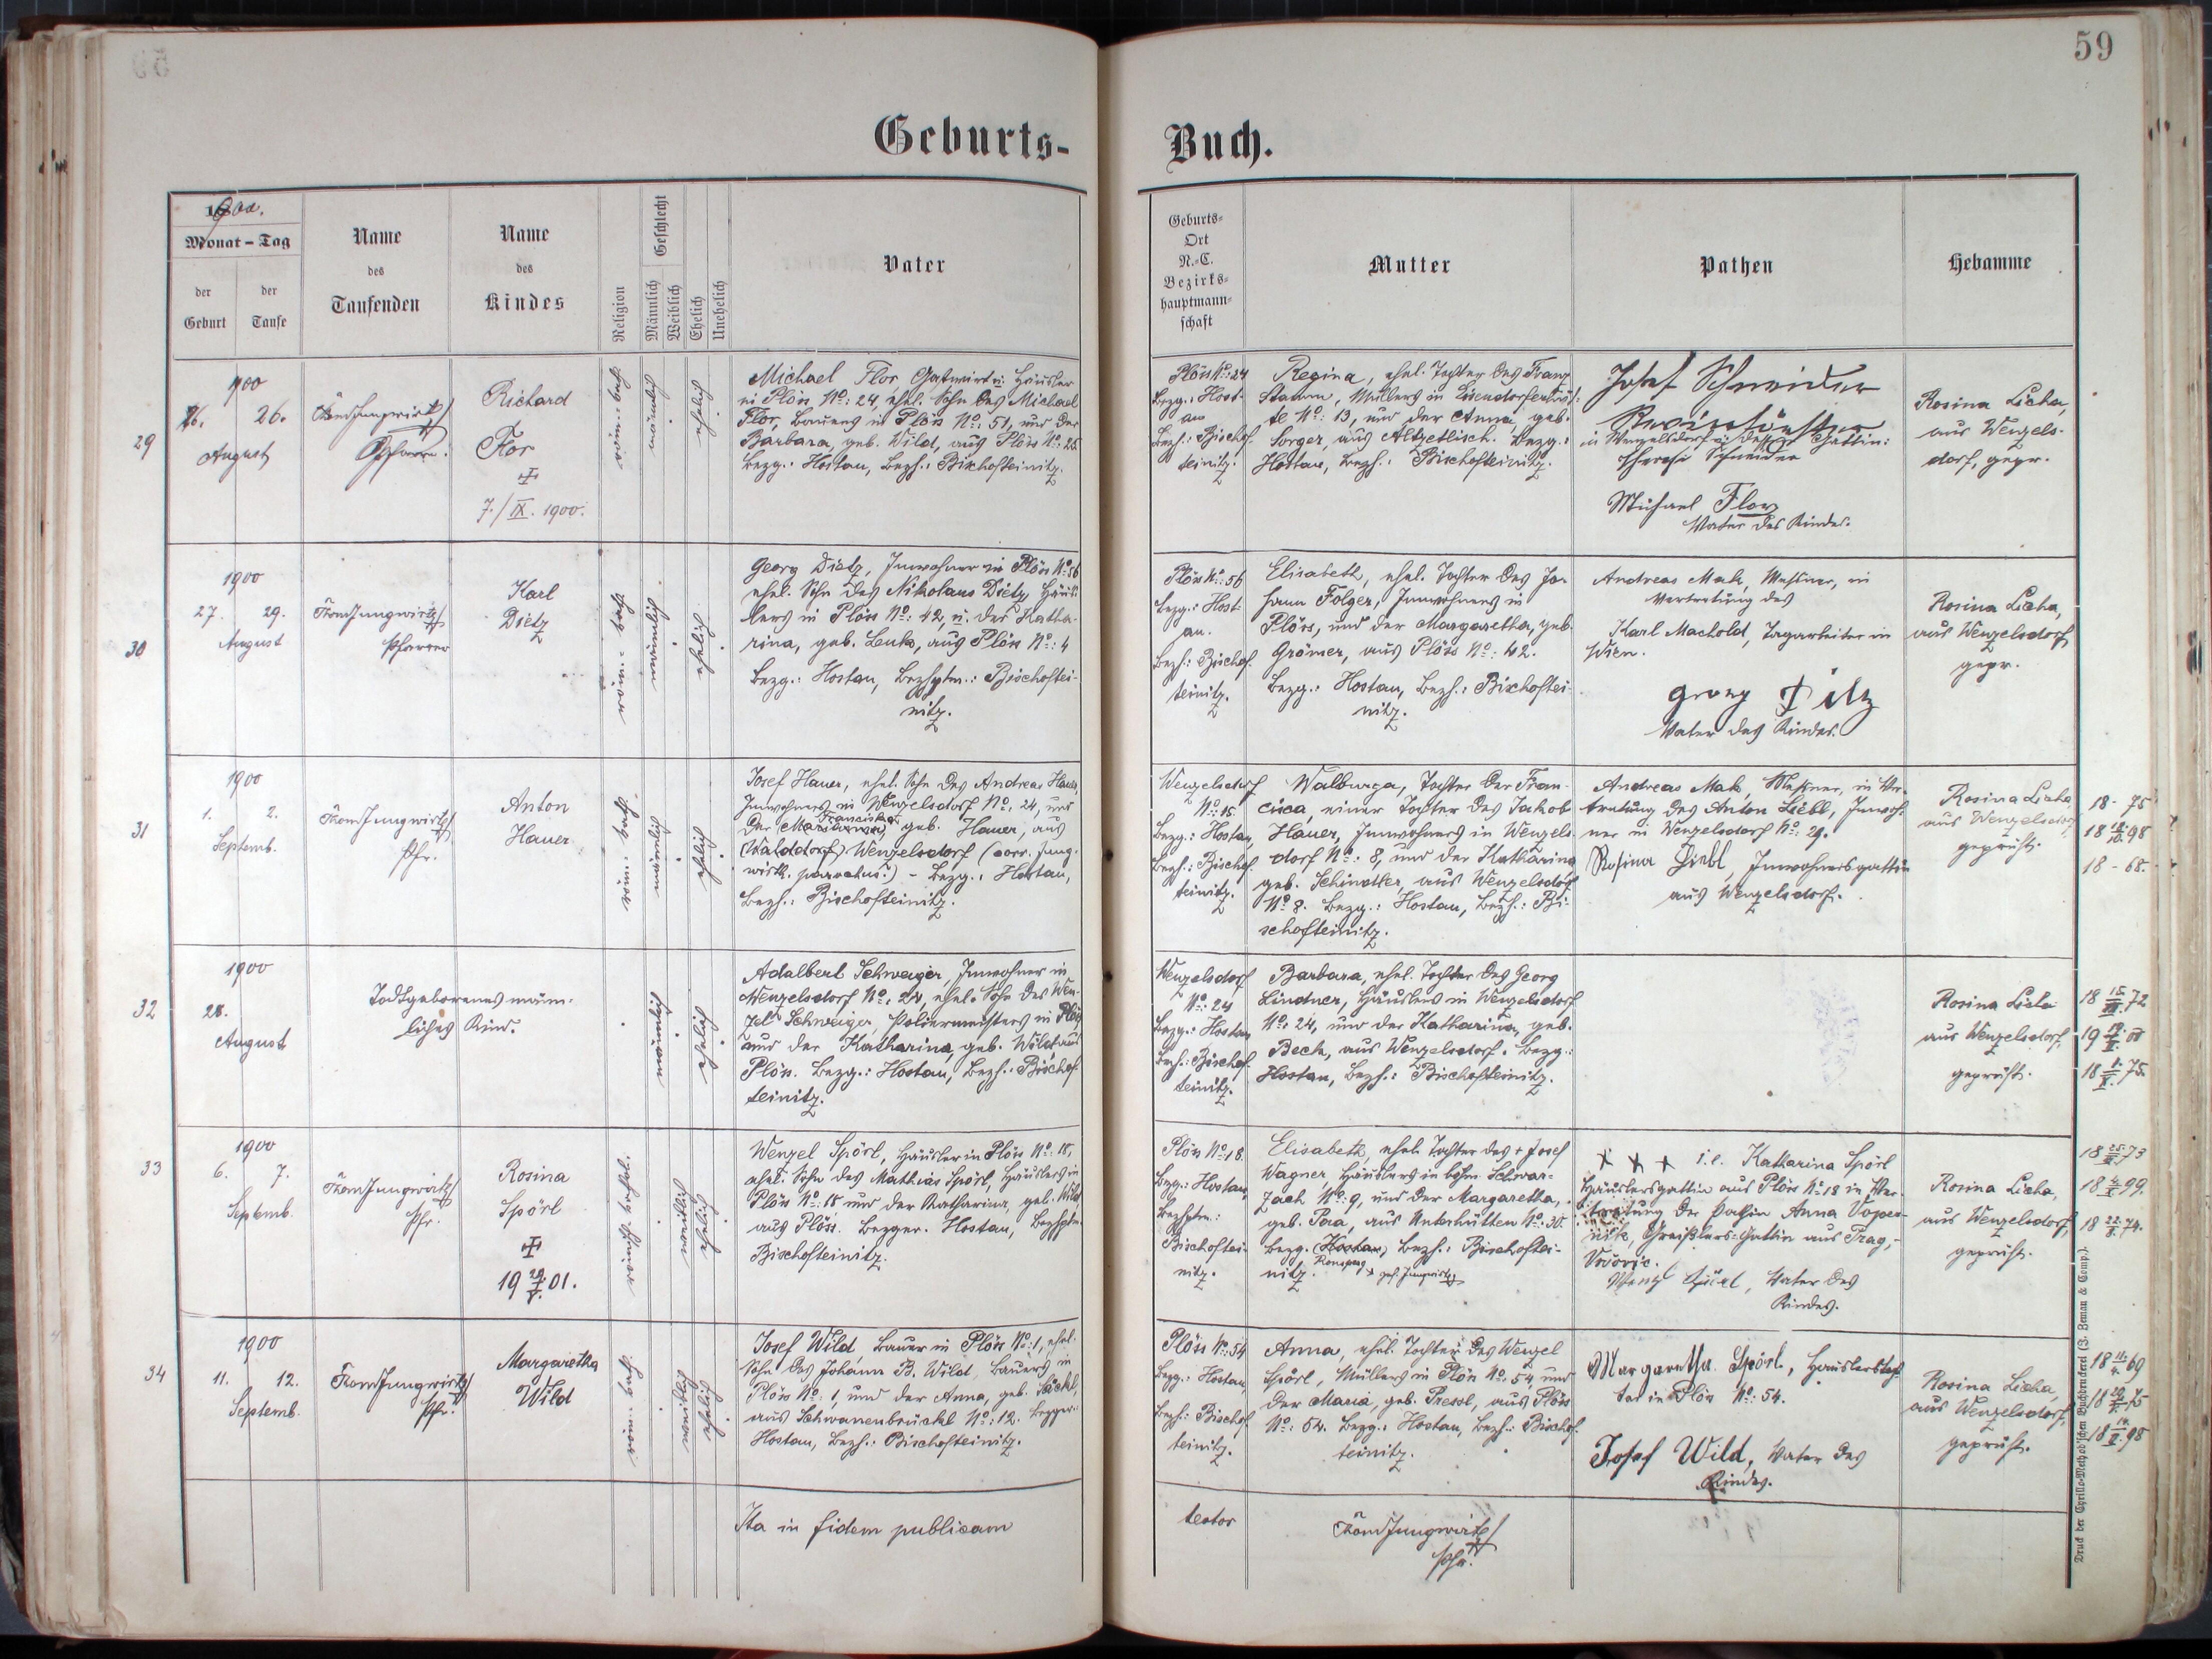 59
Geburts-
Buch.
1900.
Monat - Tag
der Geburt
der Taufe
Name des Taufenden
Name des Kindes
Religion
Geschlecht
Männlich
Weiblich
Ehelich
Unehelich
Vater
Geburts-
Ort
N.-C.
Bezirks-
hauptmann-
schaft
Mutter
Pathen
Hebamme
29
1900
26. 26.
August
Jungwirth
Pfarrer
Richard
Flor
7./IX. 1900.
röm: kath.
männlich
ehelich
Michael Flor, Gastwirt u. Häusler
in Plöss No: 24, ehel. Sohn des Michael
Flor, Bauers in Plöss No: 51, und der
Barbara, geb. Wild, aus Plöss No: 25
Bezg.: Hostau, Bezh.: Bischofteinitz.
Plöss No: 24
Bezg.: Host-
au
Bezh.: Bischof-
teinitz.
Regina, ehel. Tochter des Franz
Stamm, Müllers in Eisendorferhüt-
te No: 13, und der Anna, geb.
Sorger, aus Altzetlisch. Bezg.:
Hostau, Bezh.: Bischofteinitz.
Josef Schneider
in Wenzelsdorf u. dessen Gattin:
Theresi Schneider
Michael Flor
Vater des Kindes.
Rosina Licha,
aus Wenzels-
dorf, gepr.
30
1900
27. 29.
August
Jungwirth
Pfarrer
Karl
Dietz
röm: kath.
männlich
ehelich
Georg Dietz, Inwohner in Plöss No: 56
ehel. Sohn des Nikolaus Dietz, Häus-
lers in Plöss No: 42, u. der Katha-
rina, geb. Lenk, aus Plöss No: 4
Bezg.: Hostau, Bezhptm.: Bischoftei-
nitz.
Plöss No: 56
Bezg.: Host-
au.
Bezh.: Bischof-
teinitz.
Elisabeth, ehel. Tochter des Jo-
hann Folger, Inwohners in
Plöss, und der Margaretha, geb.
Grömer, aus Plöss No: 42.
Bezg.: Hostau, Bezh.: Bischoftei-
nitz.
Andreas Mak, Meßner, in
Vertretung des
Karl Machold, Tagarbeiter in
Wien.
Georg Ditz
Vater des Kindes.
Rosina Licha,
aus Wenzelsdorf,
gepr.
31
1900
1. 2.
Septemb.
Jungwirth
Pfr.
Anton
Hauer
röm: kath.
männlich
ehelich
Josef Hauer, ehel. Sohn des Andreas Hauer,
Inwohners in Wenzelsdorf No: 24, und
Franciska
der geb. Hauer, aus
(Walddorf) Wenzelsdorf (corr. Jung-
wirth, parochus.) - Bezg.: Hostau,
Bezh.: Bischofteinitz.
Wenzelsdorf
No: 15.
Bezg.: Hostau,
Bezh.: Bischof-
teinitz.
Walburga, Tochter der Fran-
cisca, einer Tochter des Jakob
Hauer, Inwohners in Wenzels-
dorf No: 8, und der Katharina
geb. Schindler, aus Wenzelsdorf
No 8. Bezg.: Hostau, Bezh.: Bi-
schofteinitz.
Andreas Mak, Meßner, in Ver-
tretung des Anton Liebl, Inwoh-
ner in Wenzelsdorf No: 29.
Rosina Liebl, Inwohnersgattin
aus Wenzelsdorf.
Rosina Licha
aus Wenzelsdorf
geprüft.
18 - 75
18 - 68.
32
1900
28.
August
Todtgeborenes männ-
liches Kind.
männlich
ehelich
Adalbert Schweiger, Inwohner in
Wenzelsdorf No: 24, ehel. Sohn des Wen-
zel Schweiger, Poliermeisters in Plöss
und der Katharina, geb. Wild, aus
Plöss. Bezg.: Hostau, Bezh.: Bischof-
teinitz.
Wenzelsdorf
No: 24
Bezg.: Hostau
Bezh.: Bischof-
teinitz.
Barbara, ehel. Tochter des Georg
Lindner, Häuslers in Wenzelsdorf
No: 24, und der Katharina, geb.
Beck, aus Wenzelsdorf. Bezg.:
Hostau, Bezh.: Bischofteinitz.
Rosina Licha
aus Wenzelsdorf,
geprüft.
33
1900
6. 7.
Septemb.
Jungwirth
Pfr.
Rosina
Spörl
römisch kathol.
weiblich
ehelich
Wenzel Spörl, Häusler in Plöss No: 18,
ehel. Sohn des Mathias Spörl, Häuslers in
Plöss No: 18 und der Katharina, geb. Wild,
aus Plöss. Bezger. Hostau, Bezhptm.
Bischofteinitz.
Plöss No: 18
Bezg.: Hostau,
Bezhptm.:
Bischoftei-
nitz.
Elisabeth, ehel. Tochter des + Josef
Wagner, Häuslers in böhm. Schwar-
zach No: 9, und der Margaretha,
geb. Pora, aus Unterhütten No: 30.
Bezg. (Hostau) Bezh.: Bischoftei-
nitz. Ronsperg
x x x i.e. Katharina Spörl
Häuslersgattin aus Plöss No: 18 in Ver-
tretung der Pathin Anna
Greißlers-Gattin aus Prag,-
Wenzl Spörl, Vater des
Kindes.
Rosina Licha,
aus Wenzelsdorf,
geprüft.
34
1900
11. 12.
Septemb.
Jungwirth
Pfr.
Margaretha
Wild
röm: kath.
weiblich
ehelich
Josef Wild, Bauer in Plöss No: 1, ehel.
Sohn des Johann B. Wild, Bauers in
Plöss No: 1, und der Anna, geb.
aus Schwanenbrückl No: 12. Bezger.:
Hostau, Bezh.: Bischofteinitz.
Plöss No: 54
Bezg.: Hostau,
Bezh.: Bischof-
teinitz.
Anna, ehel. Tochter des Wenzel
Spörl, Müllers in Plöss No: 54 und
der Maria, geb. Pressl, aus Plöss
No: 54. Bezg.: Hostau, Bezh.: Bischof-
teinitz.
Margaretha Spörl, Häuslerstoch-
ter in Plöss No: 54.
Josef Wild, Vater des
Kindes.
Rosina Licha,
aus Wenzelsdorf,
geprüft.
Ita in fidem publicam
testor
Jungwirth
Pfr.
Druck der Cyrillo-Method'schen Buchdruckerei (J. Zeman & Comp.).